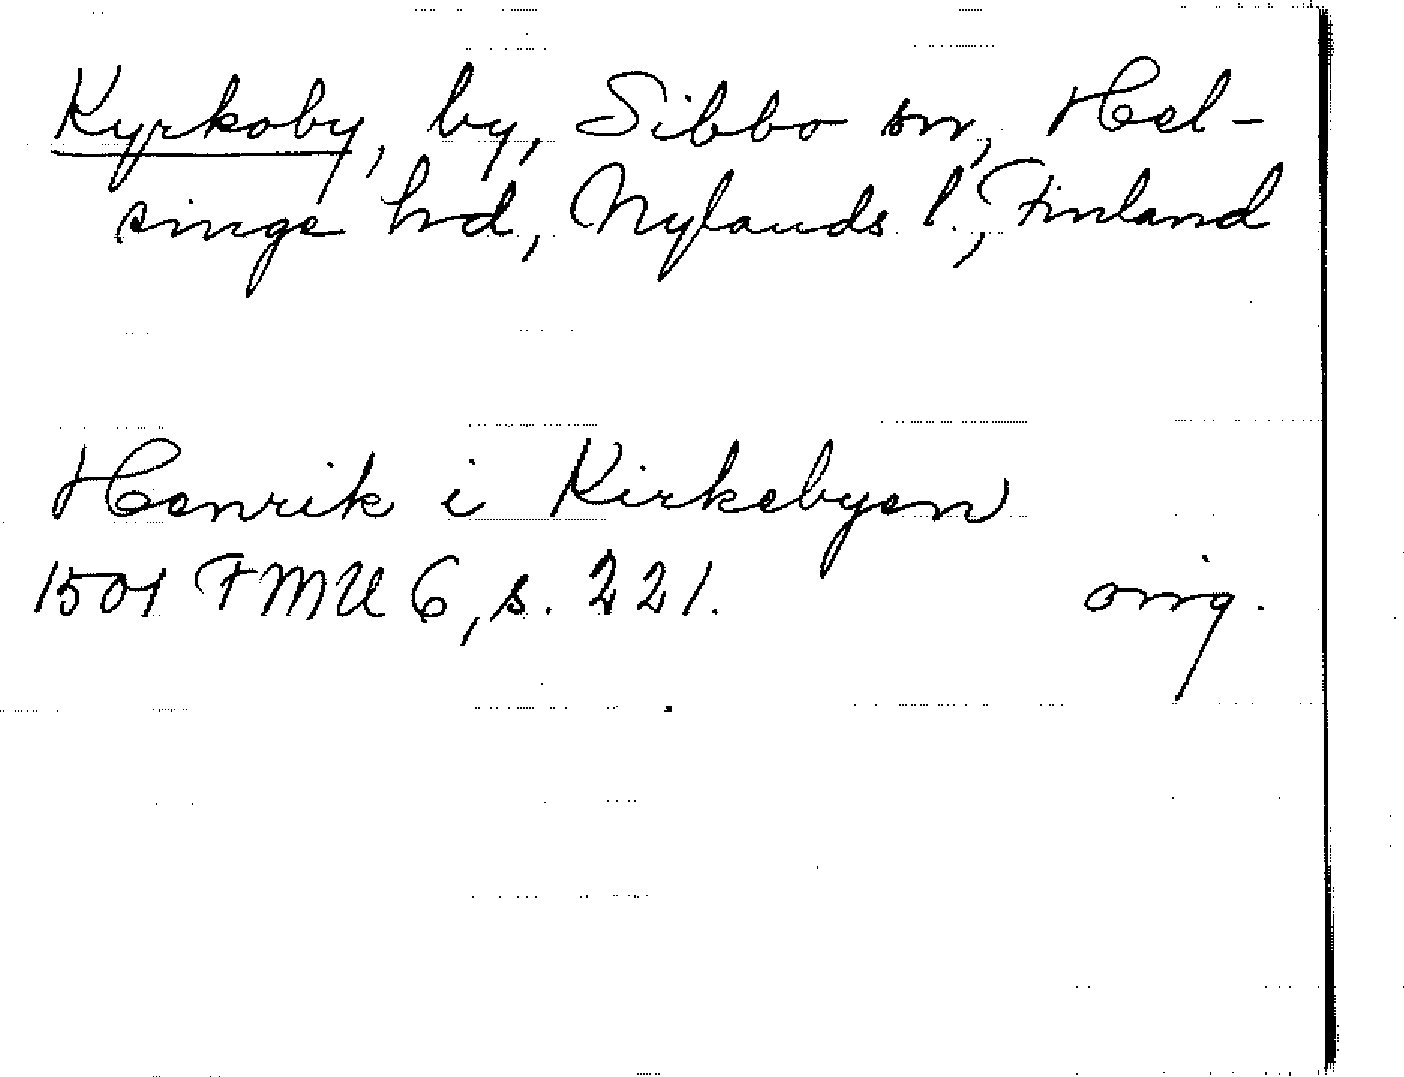 Kyrkoby, by, Sibbo sn, Hel-
singe hd, Nylands l., Finland
Henrik i Kirkebyen
1501 FMU 6, s. 221. orig.